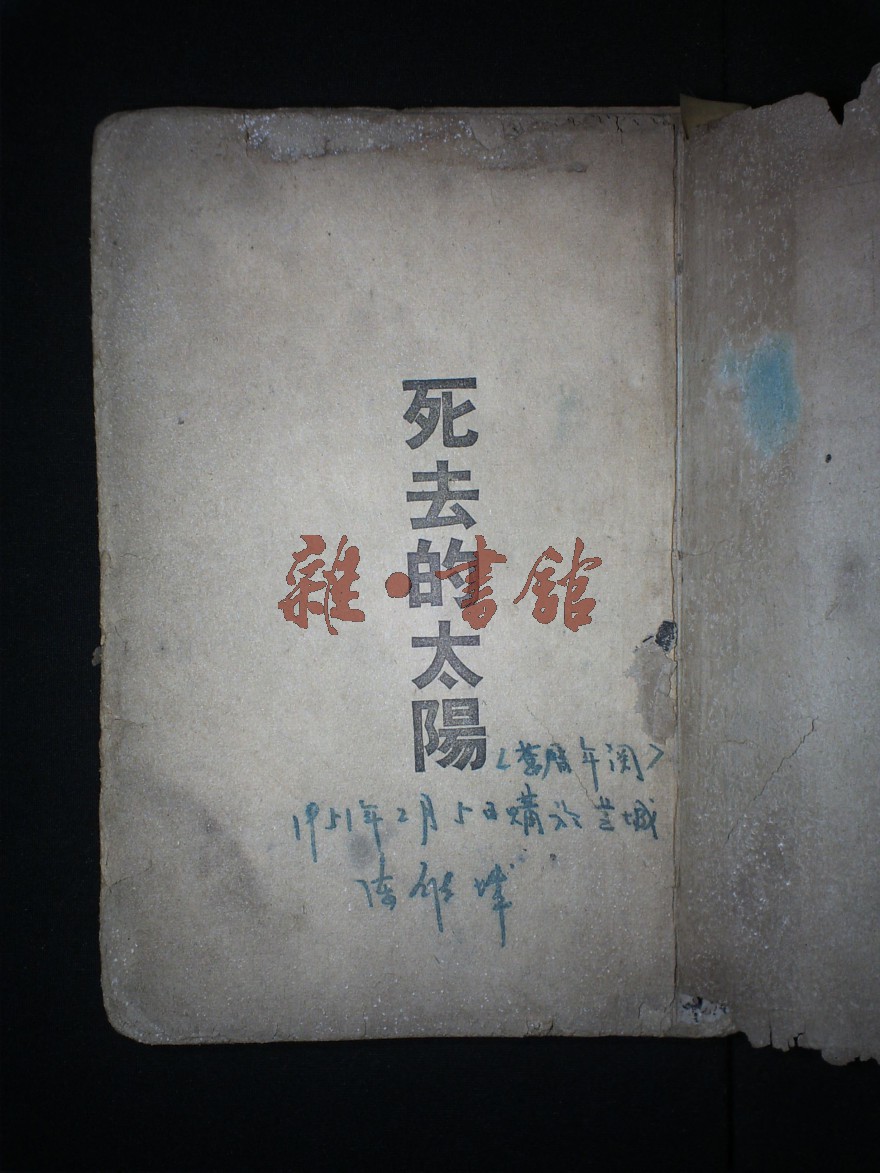 死去的太陽
雜·書館
<舊曆年関>
1951年2月5日購於